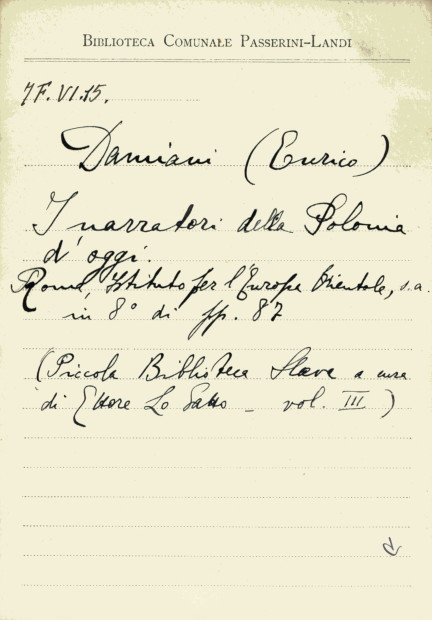 BIBLIOTECA COMUNALE PASSERINI-LANDI
7F.VI.15.
Damiani (Enrico)
I narratori della Polonia
d'oggi.
Roma, Istituto per l'Europa Orientale, s.a.
in 8° di pp. 87
(Piccola Biblioteca Slava a cura
di Ettore Lo Gatto - vol. III)